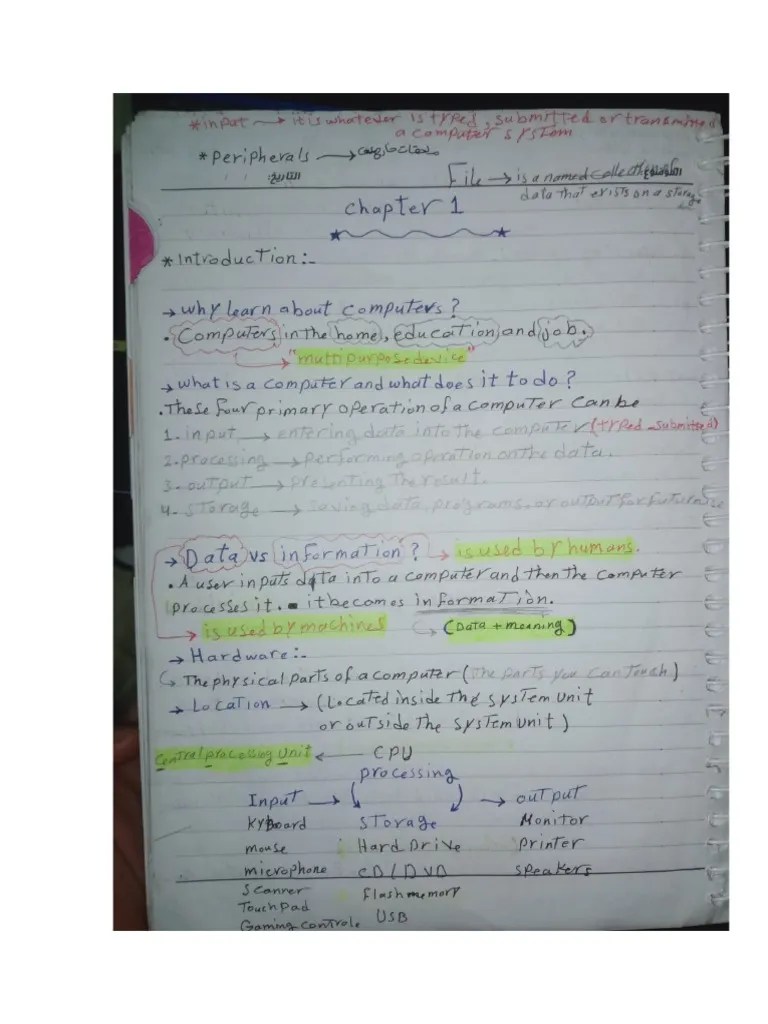 *input → it is whatever is typed, submitted or transmitted
a computer system
*Peripherals →
File → is a named collection
التاريخ: الموضوع:
data that exists on a storage
chapter 1
*Introduction:-
→ why learn about computers?
• Computers in the home, education and job.
→ "multipurpose device"
→ what is a computer and what does it to do?
• These four primary operation of a computer can be
1- input → entering data into the computer (typed - submitted)
2- processing → performing operation on the data.
3- output → presenting the result.
4- storage → saving data, programs, or output for future use
→ Data vs information? → is used by humans.
• A user inputs data into a computer and then the computer
processes it. it becomes information.
→ is used by machines → (Data + meaning)
→ Hardware:-
↳ The physical parts of a computer (The parts you can touch)
→ Location → (Located inside the system unit
or outside the system unit)
Central processing Unit ← CPU
processing
Input → → output
Kyboard storage Monitor
mouse Hard Drive printer
microphone CD/DVD speakers
scanner flash memory
Touch Pad USB
Gaming controle